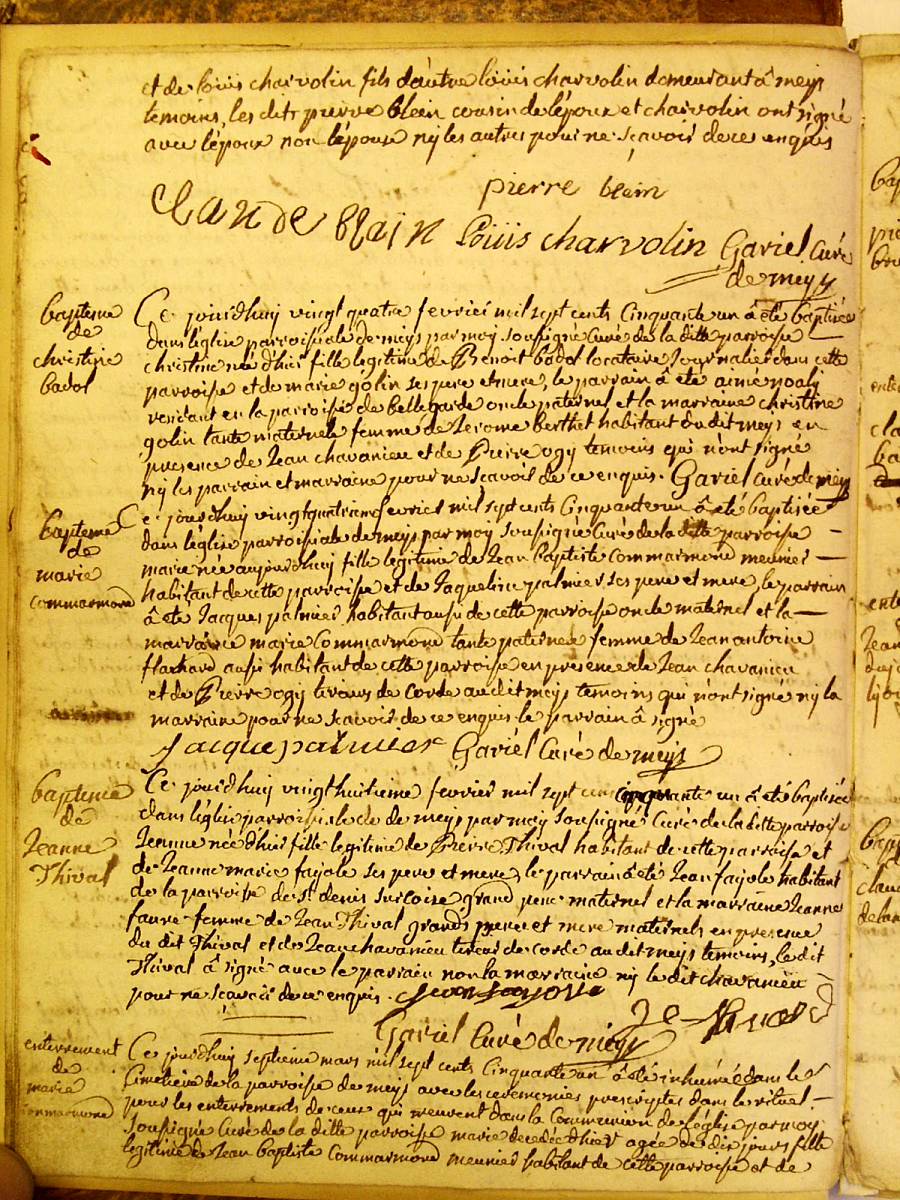 et de loüis charvolin fils dautre loüis charvolin demeurant â meys
temoins, les dits pierre blein cousin de lépoux et charvolin ont signé
avec lépoux non lépouse ny les autres pour ne scavois de ce enquis
pierre blein
Claude blain loüis charvolin Gariel Curé
de meys
bapteme
de
christine
badol
Ce jourdhuy vingt quatre fevriei mil sept cents Cinquante un â été baptisée
dans léglise parroissiale de meys par moy soussigné Curé de la ditte parroisse
christine née d'hier fille legitime de Benoit badol locataire Journalier dans cette
parroisse et de marie golin ses pere et mere, le parrain â été aimé noaly
residant en la parroisse de bellegarde oncle paternel et la marraine christine
golin tante maternele femme de Jerome berthet habitant dudit meys en
presence de Jean chavanieu et de Pierre ogy temoins qui n'ont signé
ny les parrain et marraine pour ne scavois de ce enquis. Gariel curé de meys
bapteme
de
marie
commarmond
Ce jourdhuy vingtquatrieme fevriei mil sept cents Cinquante un â été baptisée
dans léglise parroissiale de meys par moy soussigné Curé de la ditte parroisse
marie née aujourdhuy fille legitime de Jean baptiste Commarmond meunier
habitant de cette parroisse et de Jaqueline palmier ses pere et mere, le parrain
â été Jacques palmier habitant aussi de cette parroisse oncle maternel et la
marraine marie Commarmond tante paternele femme de Jean antoine
flachard aussi habitant de cette parroisse en presence de Jean chavanieu
et de Pierre ogy tireurs de Corde audit meys temoins qui n'ont signé ny la
marraine pour ne scavois de ce enquis le parrain â signé
Jacque palmier Gariel Curé de meys
bapteme
de
Jeanne
Thival
Ce jourdhuy vingt huitieme fevrier mil sept cens cinquante un â été baptisée
dans léglise parroissiale de meys par moy soussigné Curé de la ditte parroisse
Jeanne née d'hier fille legitime de Pierre Thival habitant de cette parroisse et
de Jeanne marie fayole ses pere et mere, le parrain â été Jean fayole habitant
de la parroisse de St denis sur coise grand pere maternel et la marraine Jeanne
faure femme de Jean Thival grands pere et mere maternels en presence
du dit Thival et de Jean chavanieu tireur de corde audit meys temoins, le dit
Thival â signé avec le parrain non la marraine ny le dit chavanieu
pour ne scavois de ce enquis.
Gariel Curé de meys
enterrement
de
marie
commarmond
Ce jourdhuy septieme mars mil sept cents Cinquante un â été inhumée dans le
Cimetiere de la parroisse de meys avec les ceremonies prescriptes dans le rituel
pour les enterrements de ceux qui meurent dans la Communion de léglise par moy
soussigné Curé de la ditte parroisse marie decedée d'hier agée de dix jours fille
legitime de Jean baptiste Commarmond meunier habitant de cette parroisse et de